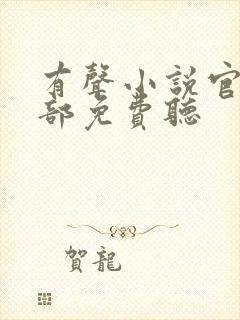 有聲小說官
部免費聽
賀龍